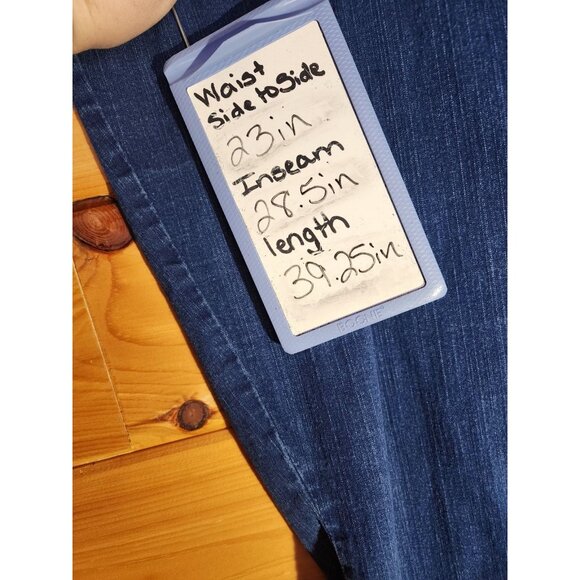 Waist
side to side
23in
Inseam
28.5in
length
39.25in